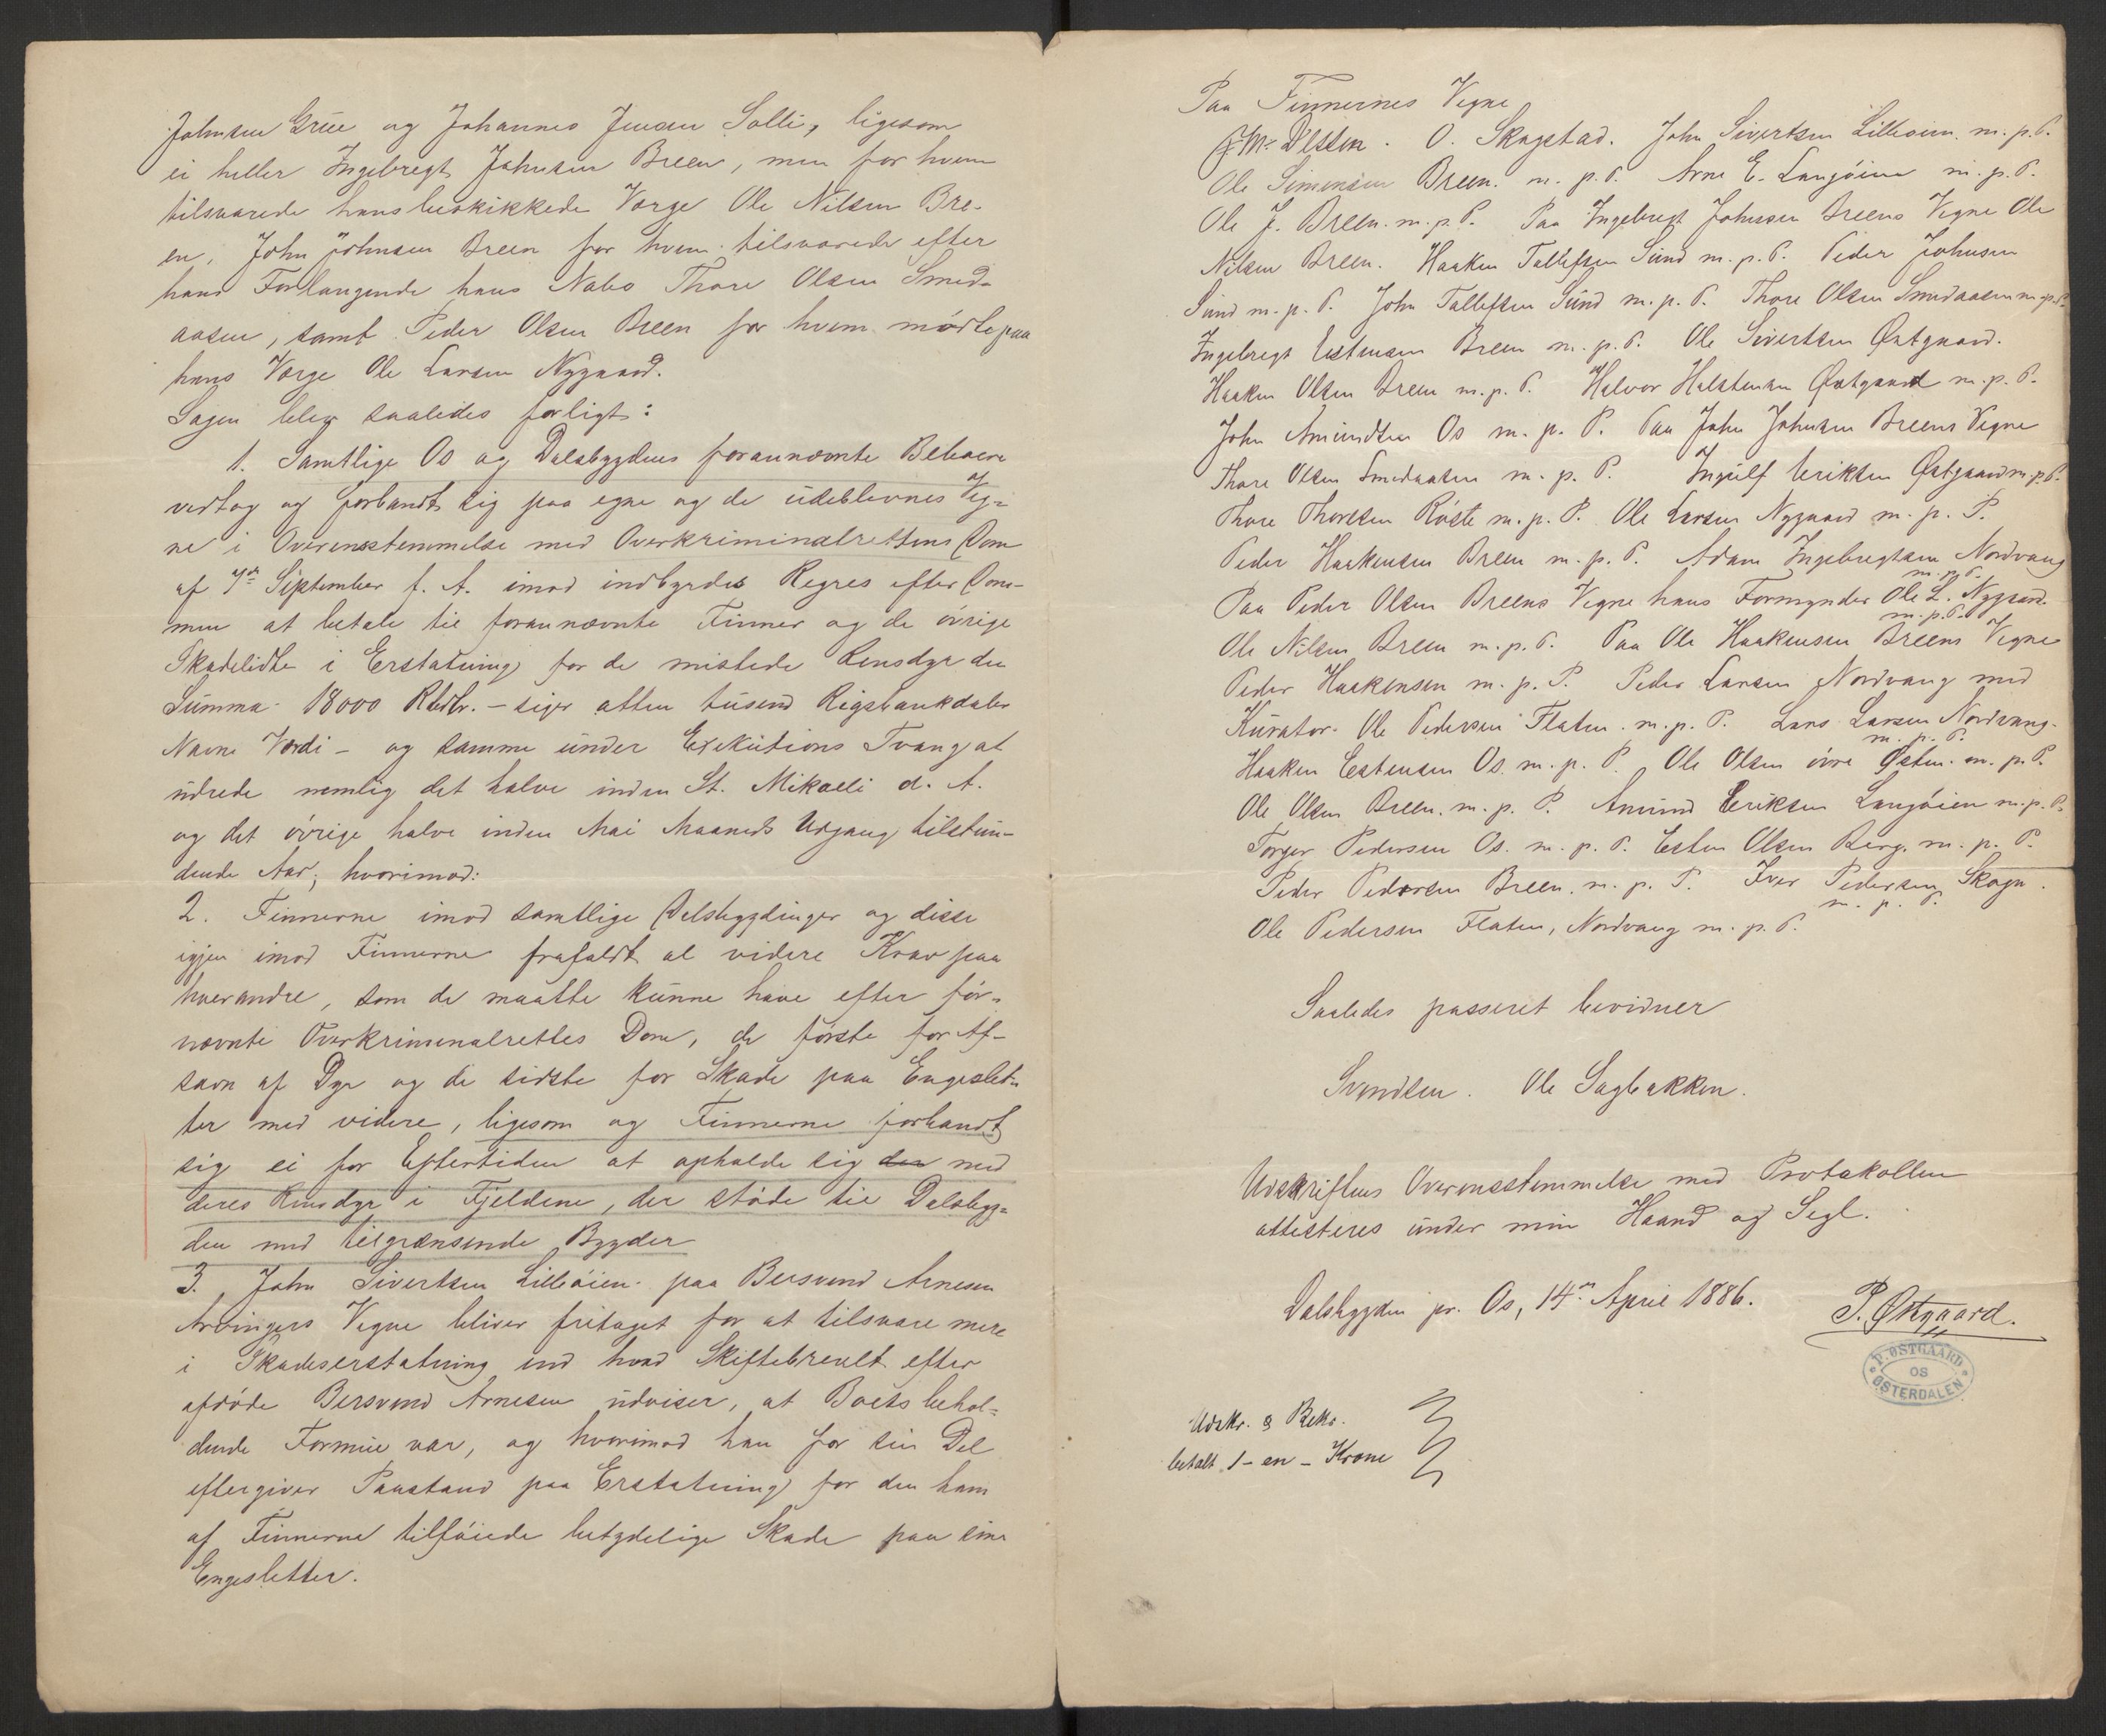 Johnsen Grue og Johannes Jensen Solli, ligesom
ei heller Ingebregt Johnsen Breen, men for hvem
tilsvarede hans beskikkede Værge Ole Nilsen Bre-
en, John Johnsen Breen for hvem tilsvarede efter
hans Forlangende hans Nabo Thore Olsen Smed-
aasen, samt Peder Olsen Breen for hvem mødte paa
hans Værge Ole Larsen Nygaard.
Sagen blev saaledes forligt:
1. Samtlige Os og Dalsbygdens forannævnte Beboere
vedtog og forbandt sig paa egne og de udeblevnes Veg-
ne i Overensstemmelse med Overkriminalrettens Dom
af 7de September f. A. imod indbyrdes Regres efter Dom-
men at betale til forannævnte Finner og de øvrige
Skadelidte i Erstatning for de mistede Rensdyr den
Summa 18000 Rbdlr. – siger atten tusend Rigsbankdaler
Navne Værdi – og samme under Exekutions Tvang at
udrede nemlig det halve inden St. Mikaeli d. A.
og det øvrige halve inden Mai Maaneds Udgang tilstun-
dende Aar; hvorimod:
2. Finnerne imod samtlige Dalsbygdinger og disse
igjen imod Finnerne frafaldt al videre Krav paa
hverandre, som de maatte kunne have efter før-
nævnte Overkriminalrettes Dom, de første for Af-
savn af Dyr og de sidste for Skade paa Engeslet-
ter med videre, ligesom og Finnerne forbandt
sig ei for Eftertiden at opholde sig den med
deres Rensdyr i Fjeldene, der støde til Dalsbyg-
den med tilgrænsende Bygder
3. John Sivertsen Lilleøien paa Bersvend Arnesen
Arvingers Vegne bliver fritaget for at tilsvare mere
i Skadeserstatning end hvad Skiftebrevet efter
afdøde Bersvend Arnesen udviser, at Boets behol-
dende Formue var, og hvorimod han for sin Del
eftergiver Paastand paa Erstatning for den ham
af Finnerne tilføiede betydelige Skade paa sine
Engesletter.
Paa Finnernes Vegne
J. M. Olsen. O. Skogstad. John Sivertsen Lilleøien. m. p. P.
Ole Simensen Breen. m. p. P. Arne E. Langøien m. p. P.
Ole J. Breen. m. p. P. Paa Ingebregt Johnsen Breens Vegne Ole
Nilsen Breen. Haaken Tollefsen Sund m. p. P. Peder Johnsen
Sund m. p. P. John Tollefsen Sund m. p. P. Thore Olsen Smedaasen m. p. P.
Ingebregt Estensen Breen m. p. P. Ole Sivertsen Østgaard.
Haaken Olsen Breen m. p. P. Halvor Halstensen Østgaard m. p. P.
John Amundsen Os m. p. P. Paa John Johnsen Breens Vegne
Thore Olsen Smedaasen m. p. P. Ingulf Eriksen Østgaard m. p. P.
Thore Thoresen Røste m. p. P. Ole Larsen Nygaard m. p. P.
Peder Haakensen Breen m. p. P. Adam Ingebregtsen Nordvang
m. p. P.
Paa Peder Olsen Breens Vegne hans Formynder Ole L. Nygaard.
m. p. P.
Ole Nilsen Breen m. p. P. Paa Ole Haakensen Breens Vegne
Peder Haakensen m. p. P. Peder Larsen Nordvang med
Kurator Ole Pedersen Flaten. m. p. P. Lars Larsen Nordvang.
m. p. P.
Haaken Estensen Os. m. p. P. Ole Olsen øvre Østen. m. p. P.
Ole Olsen Breen. m. p. P. Amund Eriksen Langøien m. p. P.
Torger Pedersen Os. m. p. P. Esten Olsen Berg. m. p. P.
Peder Pedersen Breen. m. p. P. Iver Pedersen Skogn.
m. p. P.
Ole Pedersen Flaten, Nordvang m. p. P.
Saaledes passeret bevidner
Svendsen. Ole Sagbakken.
Udskriftens Overensstemmelse med Protokollen
attesteres under min Haand og Segl.
Dalsbygden pr. Os, 14de April 1886.
P. Østgaard.
P. ØSTGAARD
OS
ØSTERDALEN
Udskr. & Bekr.
betalt 1 – en – Krone